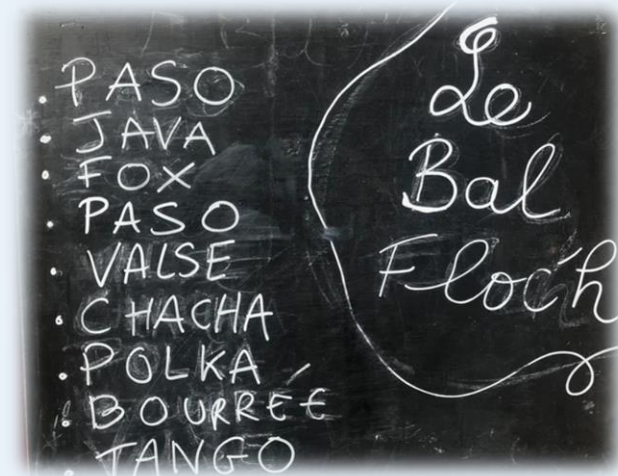 PASO
JAVA
FOX
PASO
VALSE
CHACHA
POLKA
BOURRÉE
TANGO
Le
Bal
Floc'h